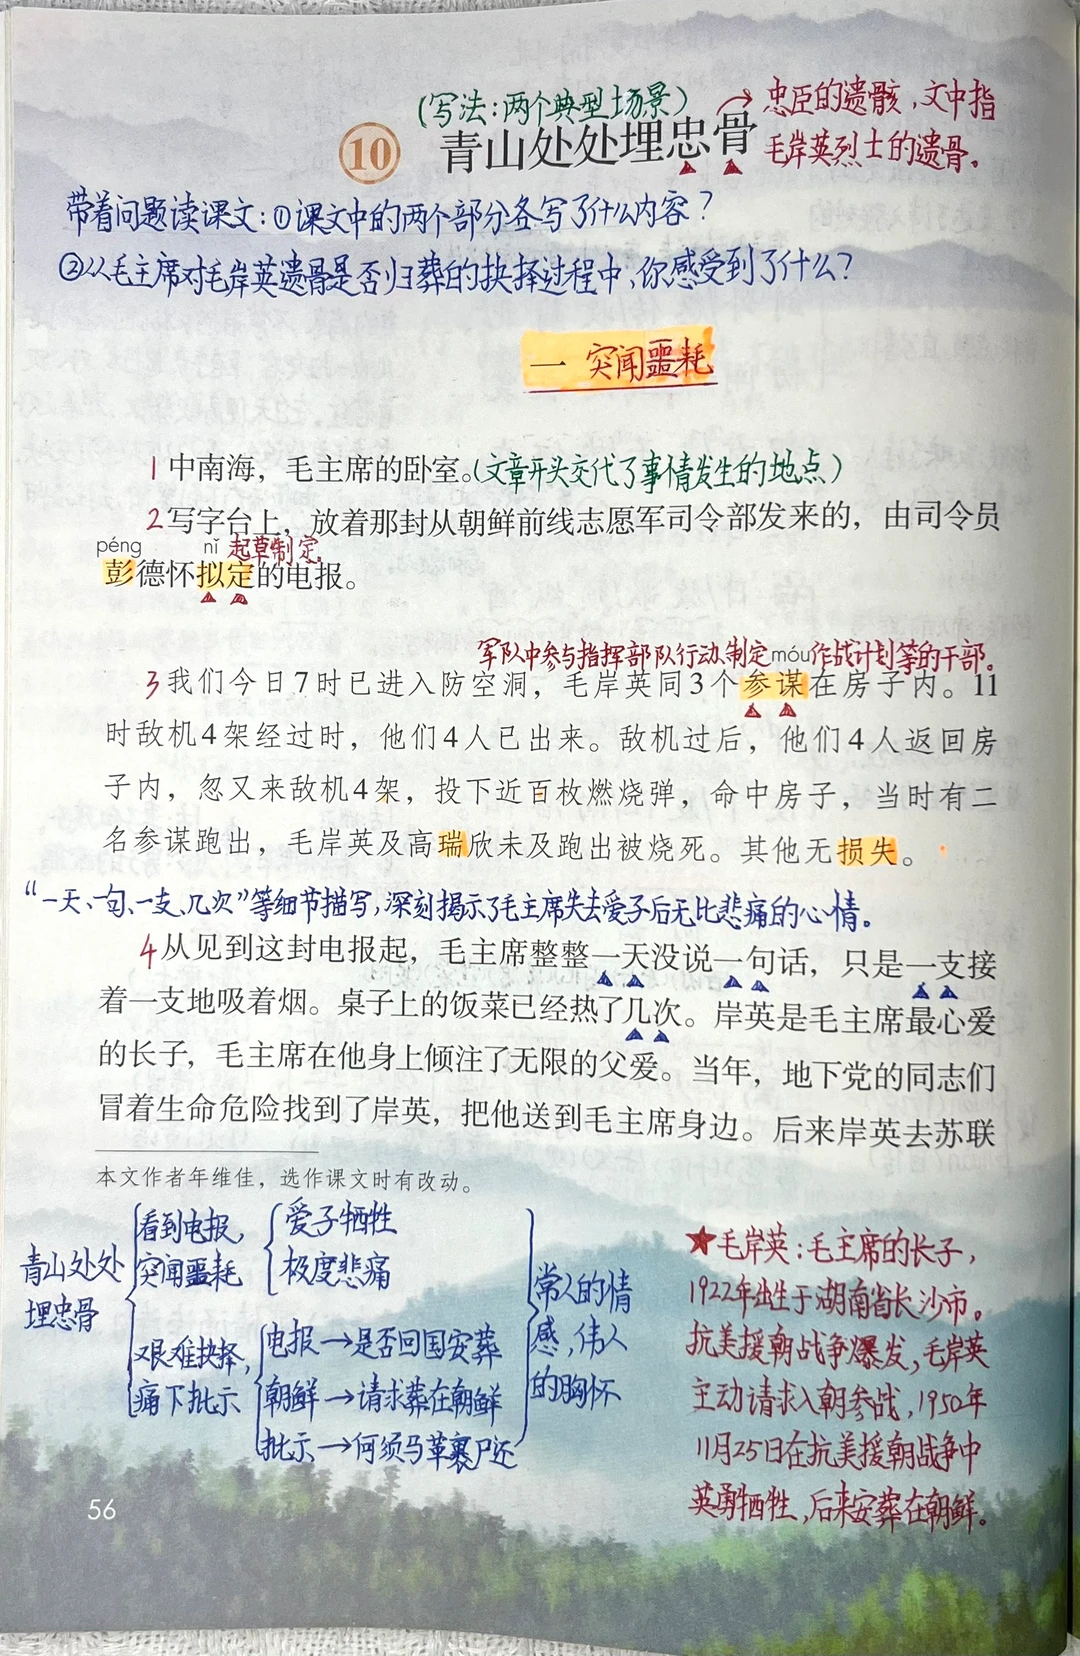 (写法:两个典型场景)
忠臣的遗骸,文中指
毛岸英烈士的遗骨。
10 青山处处埋忠骨
带着问题读课文:①课文中的两个部分各写了什么内容?
②从毛主席对毛岸英遗骨是否归葬的抉择过程中,你感受到了什么?
一 突闻噩耗
1 中南海,毛主席的卧室。(文章开头交代了事情发生的地点)
2 写字台上,放着那封从朝鲜前线志愿军司令部发来的,由司令员
péng nǐ 起草制定。
彭德怀拟定的电报。
军队中参与指挥部队行动、制定móu作战计划等的干部。
3 我们今日7时已进入防空洞,毛岸英同3个参谋在房子内。11
时敌机4架经过时,他们4人已出来。敌机过后,他们4人返回房
子内,忽又来敌机4架,投下近百枚燃烧弹,命中房子,当时有二
名参谋跑出,毛岸英及高瑞欣未及跑出被烧死。其他无损失。
“一天、一句、一支、几次”等细节描写,深刻揭示了毛主席失去爱子后无比悲痛的心情。
4 从见到这封电报起,毛主席整整一天没说一句话,只是一支接
着一支地吸着烟。桌子上的饭菜已经热了几次。岸英是毛主席最心爱
的长子,毛主席在他身上倾注了无限的父爱。当年,地下党的同志们
冒着生命危险找到了岸英,把他送到毛主席身边。后来岸英去苏联
本文作者年维佳,选作课文时有改动。
青山处处
埋忠骨
看到电报,
突闻噩耗
爱子牺牲
极度悲痛
艰难抉择,
痛下批示
电报→是否回国安葬
朝鲜→请求葬在朝鲜
批示→何须马革裹尸还
常人的情
感,伟人
的胸怀
★毛岸英:毛主席的长子,
1922年出生于湖南省长沙市。
抗美援朝战争爆发,毛岸英
主动请求入朝参战,1950年
11月25日在抗美援朝战争中
英勇牺牲,后来安葬在朝鲜。
56